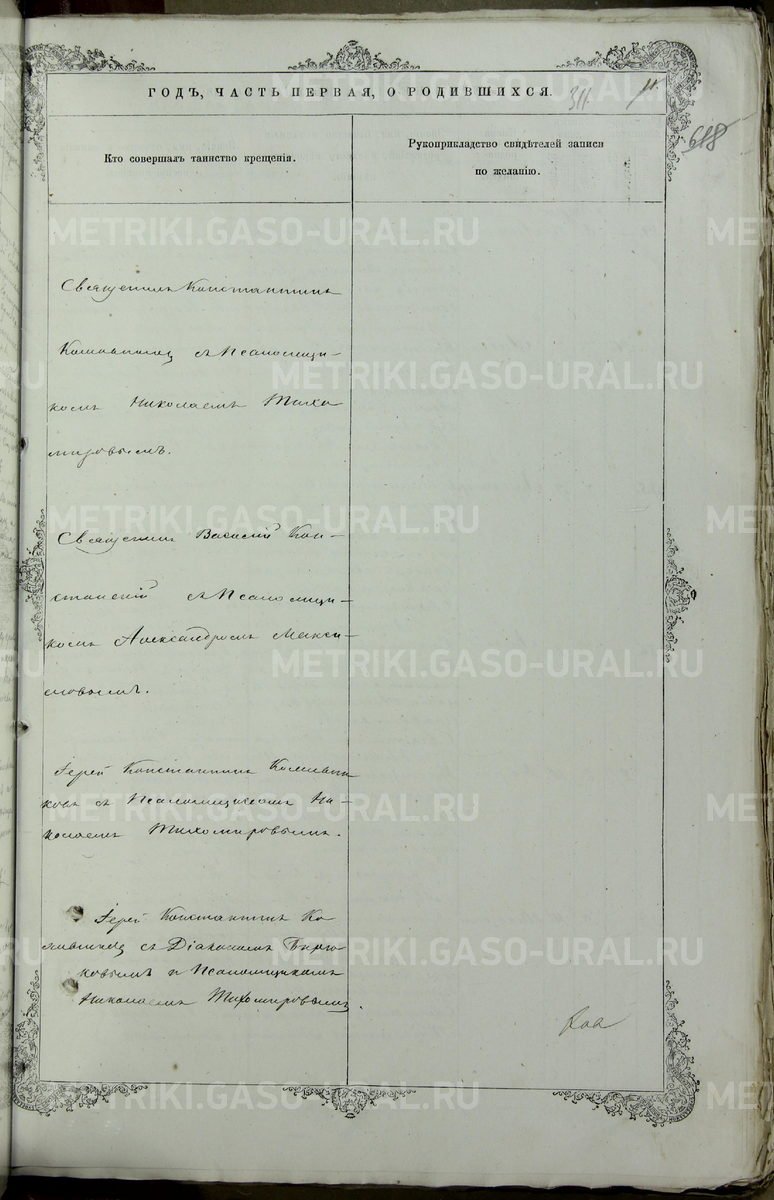 ГОДЪ, ЧАСТЬ ПЕРВАЯ, О РОДИВШИХСЯ.
311.
11.
618
Кто совершалъ таинство крещенія.
Рукоприкладство свидѣтелей записи
по желанію.
Священникъ Константинъ
съ Псаломщи-
комъ Николаемъ Тихо
мировымъ.
Священникъ Василій Кон-
станскій съ Псаломщи-
комъ Александромъ Макси-
мовымъ.
Іерей Константинъ
ковъ съ Псаломщикомъ Ни-
колаемъ Тихомировымъ.
Іерей Константинъ Ко
съ Діакономъ
ковымъ и Псаломщикомъ
Николаемъ Тихомировымъ.
METRIKI.GASO-URAL.RU